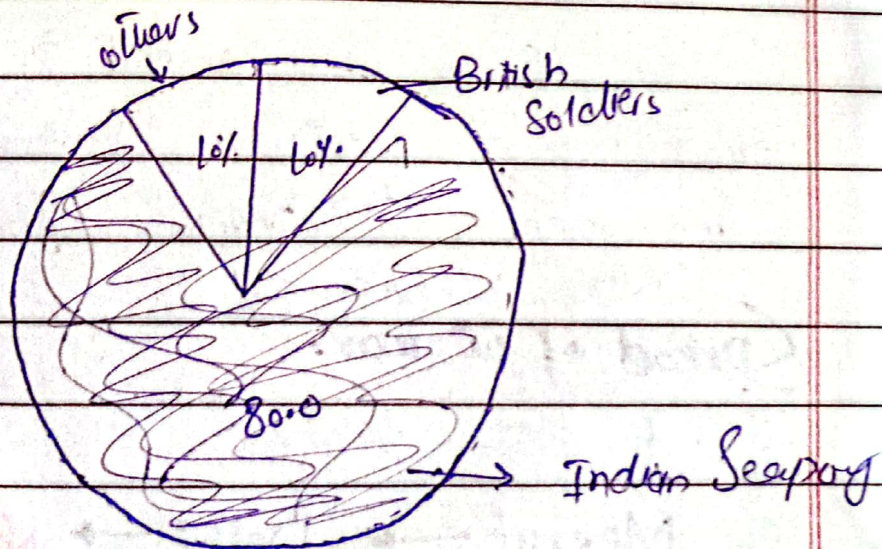 others
British
Soldiers
10%.
10%.
80.0
Indian Seapoy